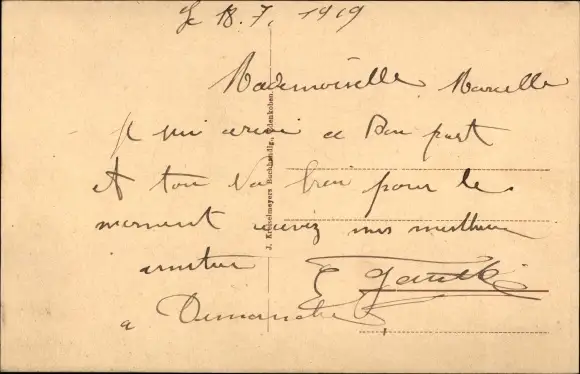 Le 18.7.1919
Mademoiselle Marcelle
Je sui arivé a Bon port
et tou va bien pour le
moment recevez mes meilleure
amitier
a Dimanche
J. Kriselmeyers Buchhandlg., Edenkoben.